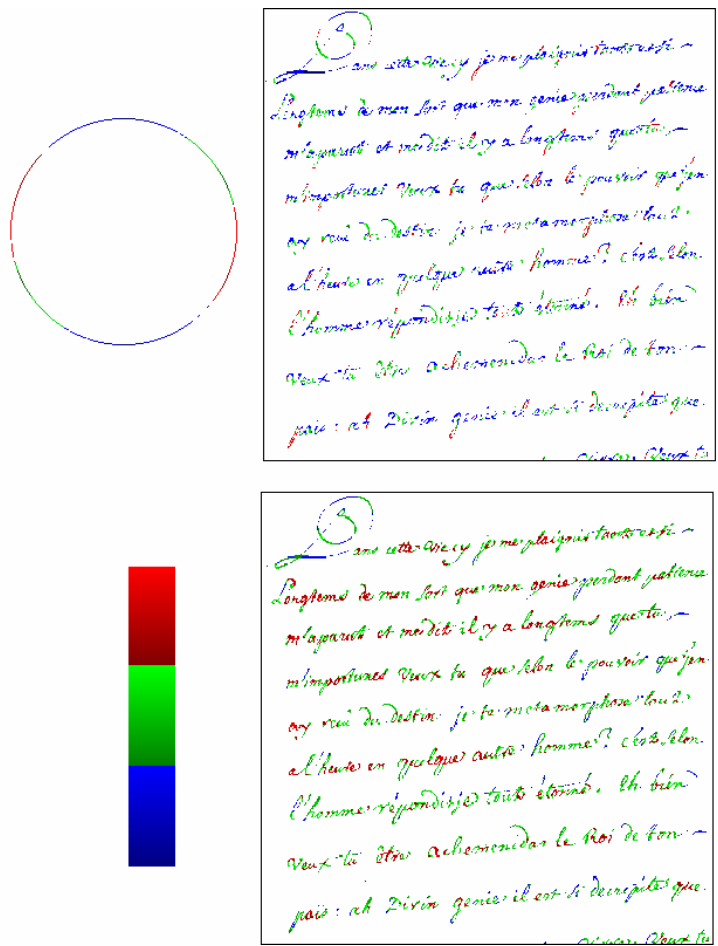 Dans cette vie cy je me plaignis
Longtems de mon sort que mon genie perdant patience
m'aparut et me dit il y a longtems que tu –
m'importunes veux tu que selon le pouvoir que j'en
ay reçû du destin je te metamorphose
a l'heure en quelque autre homme? c'est selon
l'homme répondis je tout étonné. Eh bien
veux tu être achemenidas le Roi de ton –
païs : ah Divin genie il est si decrepite que
Veux tu
Dans cette vie cy je me plaignis
Longtems de mon sort que mon genie perdant patience
m'aparut et me dit il y a longtems que tu –
m'importunes veux tu que selon le pouvoir que j'en
ay reçû du destin je te metamorphose
a l'heure en quelque autre homme? c'est selon
l'homme répondis je tout étonné. Eh bien
veux tu être achemenidas le Roi de ton –
païs : ah Divin genie il est si decrepite que
Veux tu